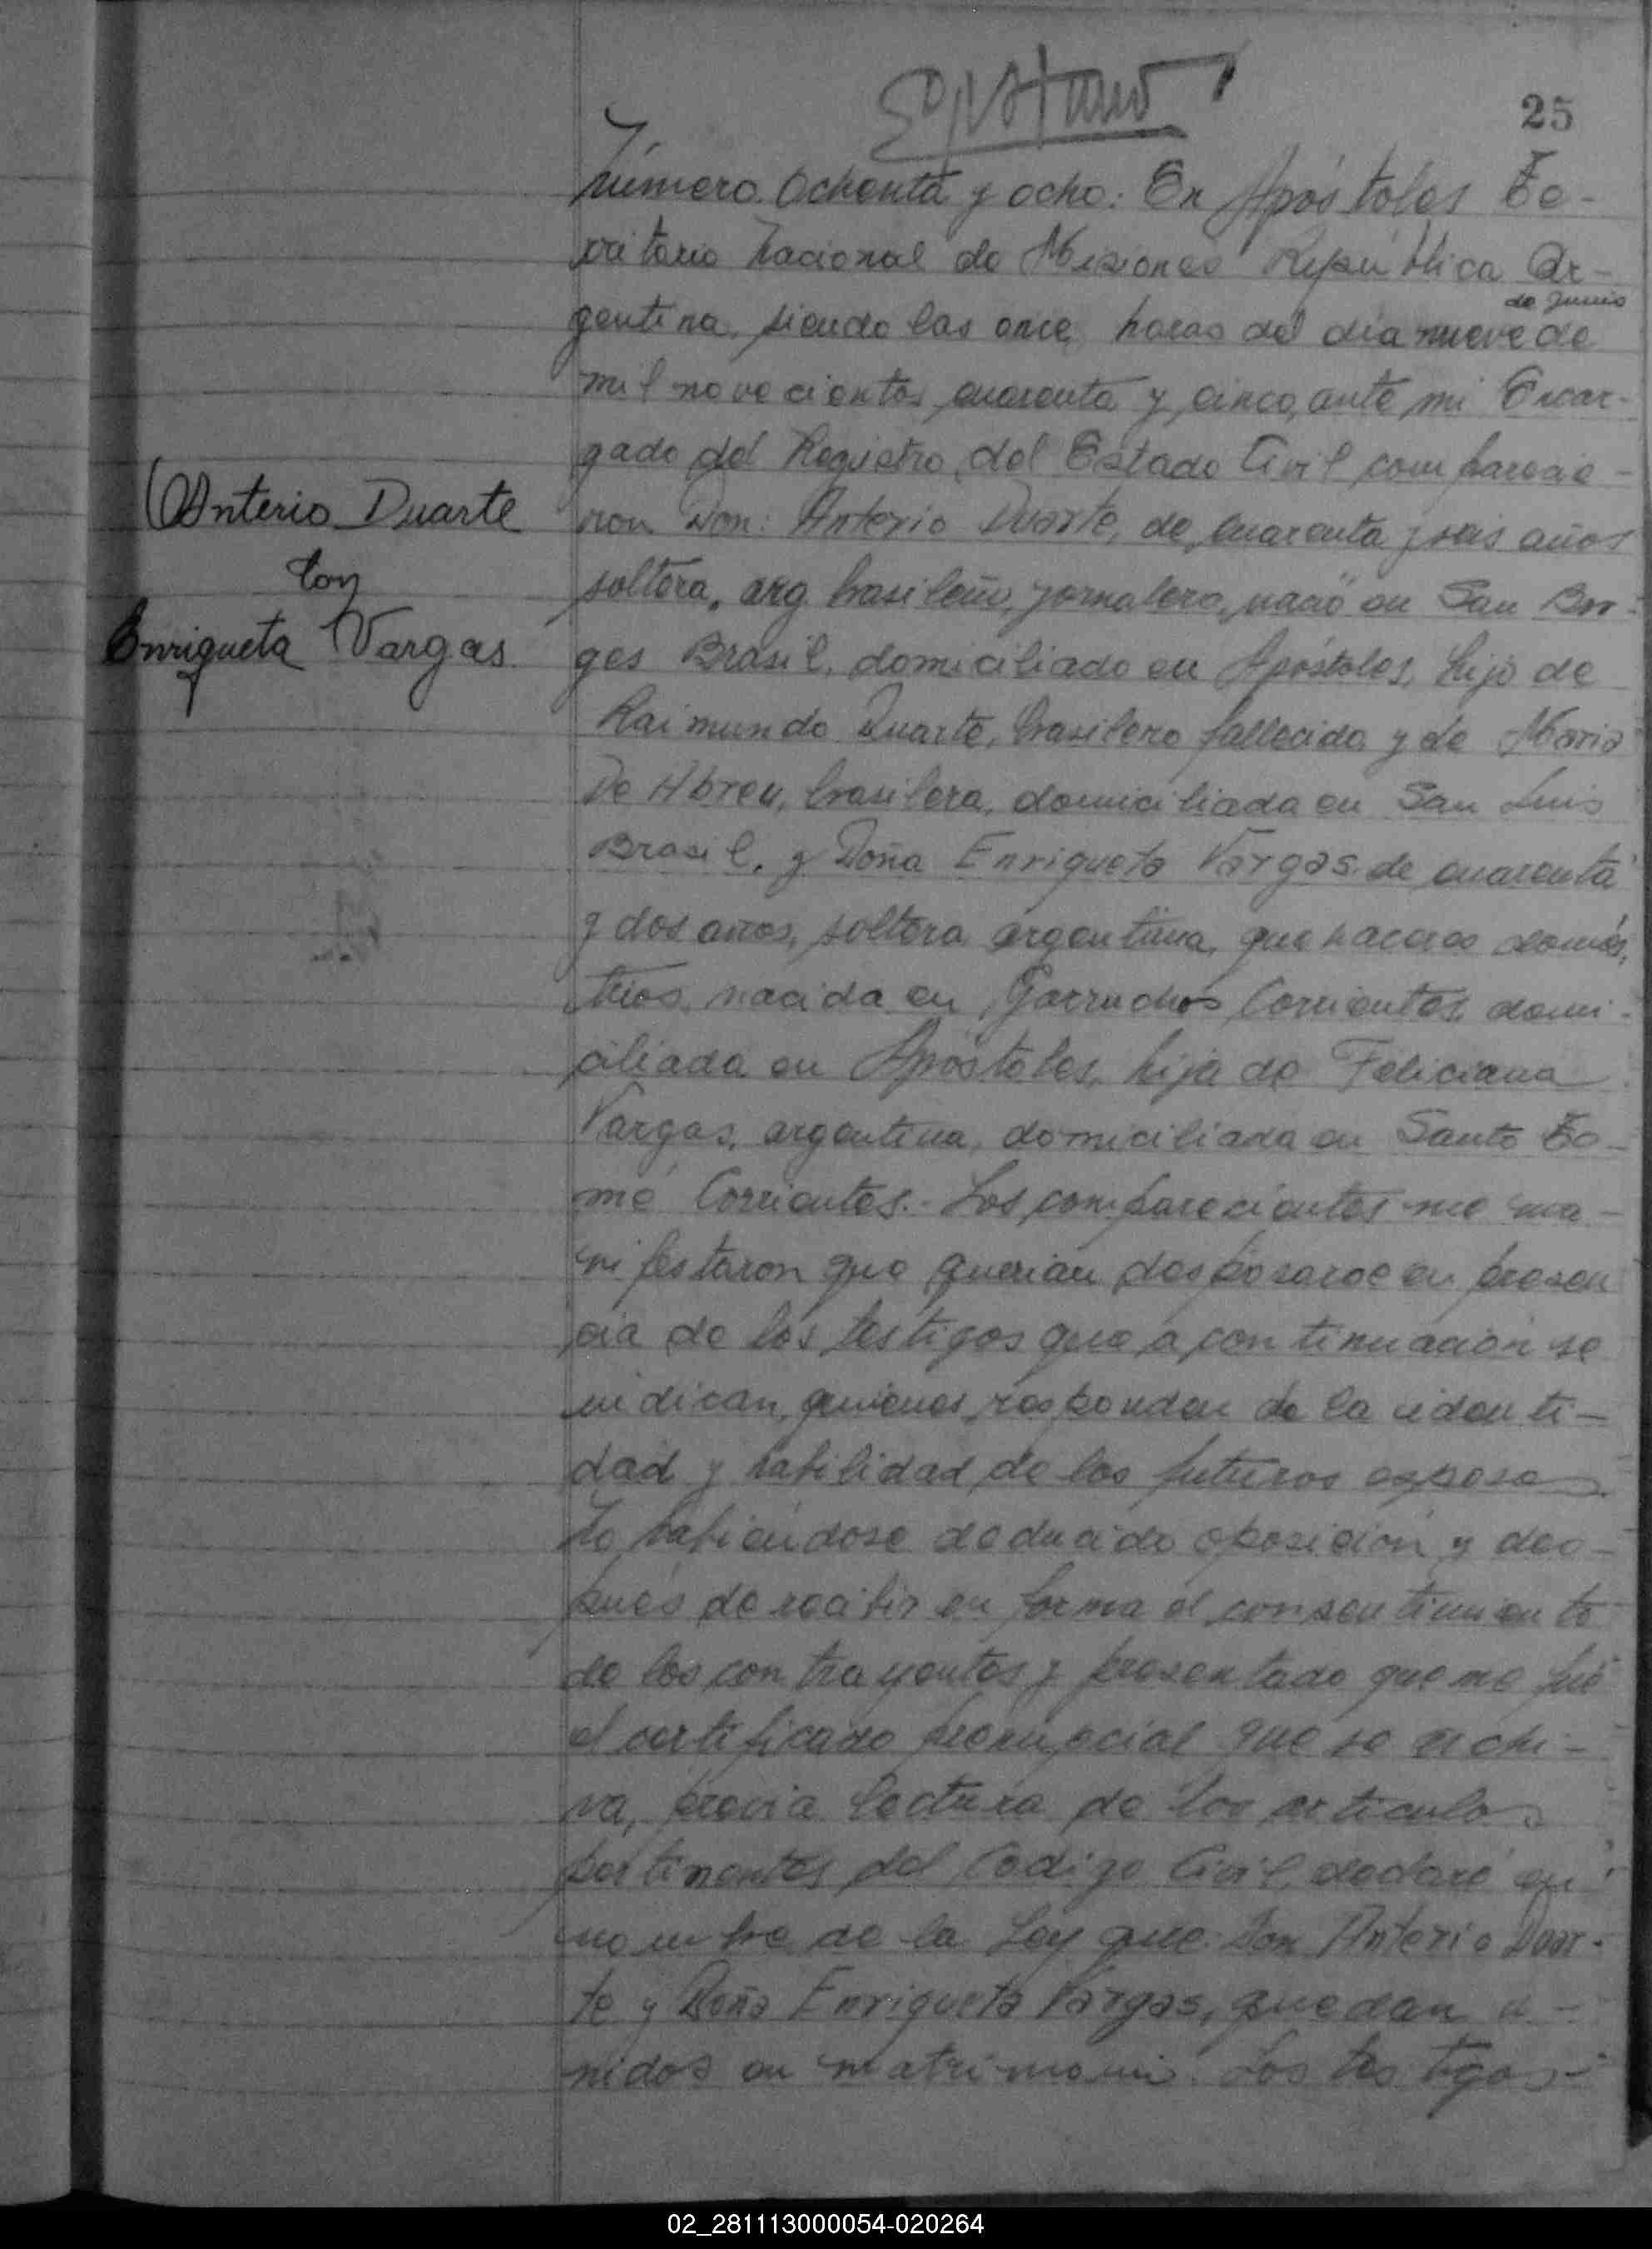 25
Número Ochenta y ocho: En Apóstoles Te-
rritorio Nacional de Misiones República Ar-
de Junio
gentina, siendo las once horas del día nueve de
mil novecientos cuarenta y cinco, ante mi Encar-
gado del Registro del Estado Civil comparecie-
ron Don: Anterio Duarte, de cuarenta y seis años
Anterio Duarte
con
Enriqueta Vargas
soltero, arg brasileño, jornalero, nació en San Bor-
ges Brasil, domiciliado en Apóstoles, hijo de
Raimundo Duarte, brasilero fallecido y de Maria
De Abreu, brasilera, domiciliada en San Luis
Brasil, y Doña Enriqueta Vargas de cuarenta
y dos años, soltera argentina, quehaceres domés-
ticos, nacida en Garruchos Corrientes domi-
ciliada en Apóstoles, hija de Feliciana
Vargas, argentina, domiciliada en Santo To-
mé Corrientes.- Los comparecientes me ma-
nifestaron que querian desposarse en presen
cia de los testigos que a continuación se
indican, quienes responden de la identi-
dad y habilidad de los futuros esposos
No habiendose deducido oposición y des-
pués de recibir en forma el consentimiento
de los contrayentes y presentado que me fué
el certificado prenupcial que se archi-
va, previa lectura de los articulos
pertinentes del Codigo Civil, declaré en
nombre de la Ley que: Don Anterio Duar-
te y Doña Enriqueta Vargas, quedan u-
nidos en matrimonio. Los testigos-
02_281113000054-020264